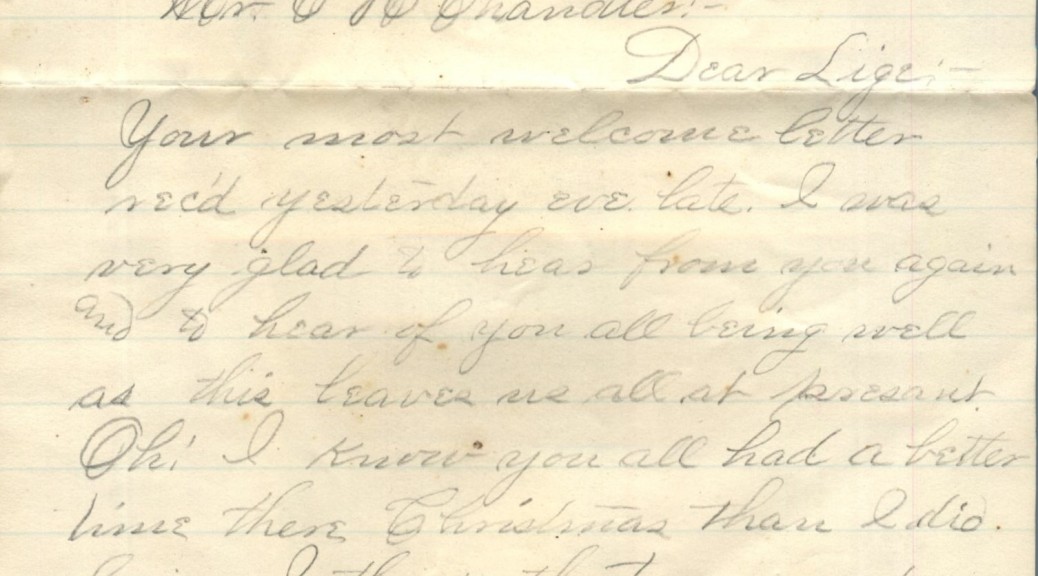 Mr. Chandler:-
Dear Lige:-
Your most welcome letter
rec'd yesterday eve. late. I was
very glad to hear from you again
and to hear of you all being well
as this leaves us all at presant
Oh! I know you all had a better
time there Christmas than I did.